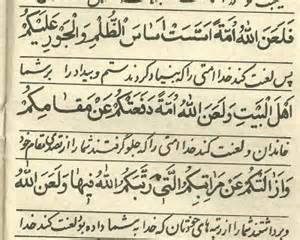 فَلَعَنَ اللهُ اُمَّةً اَسَّسَتْ اَسَاسَ الظُّلْمِ وَالْجَوْرِ عَلَيْكُمْ
پس لعنت کند خدا امتی را که بنیاد کردند ستم و بیداد را برشما
اَهْلَ الْبَيْتِ وَلَعَنَ اللهُ اُمَّةً دَفَعَتْكُمْ عَنْ مَقَامِكُمْ
خاندان و لعنت کند خدا امتی را که جلوگرفتند شما را از مقام خود
وَاَزَالَتْكُمْ عَنْ مَرَاتِبِكُمُ الَّتِي رَتَّبَكُمُ اللهُ فِيهَا وَلَعَنَ اللهُ
و برداشتند شما را از رتبه های خودتان که خدا به شما داده بود لعنت کند خدا